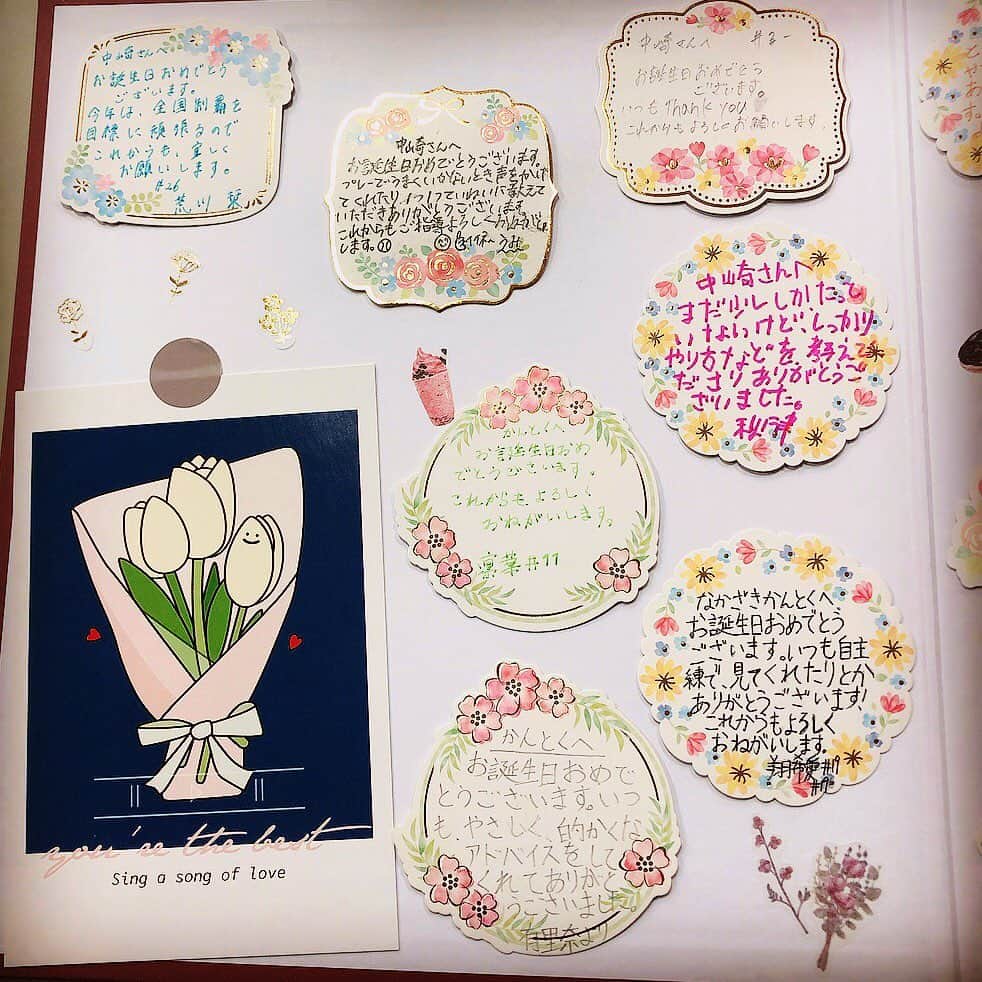 中崎さんへ
お誕生日おめでとう
ございます。
今年は、全国制覇を
目標に頑張るので
これからも、宜しく
お願いします。
#26
荒川 栞
中崎さんへ
お誕生日おめでとうございます。
プレーでうまくいかないとき声をかけ
てくれたり、1つ1つていねいに教えて
いただきありがとうございます。
これからもご指導よろしくお願い
します。
中崎さんへ
お誕生日おめでとう
ございます。
いつもThank you
これからもよろしくお願いします。
中崎さんへ
まだ少ししかたって
いないけど、しっかり
やり方などを、教えて
くださりありがとうご
ざいました。
かんとくへ
お誕生日おめ
でとうございます。
これからもよろしく
おねがいします。
#11
なかざきかんとくへ
お誕生日おめでとう
ございます。いつも自主
練で、見てくれたりとか
ありがとうございます!
これからもよろしく
おねがいします。
かんとくへ
お誕生日おめで
とうございます。いつ
も、やさしく、的かくな
アドバイスをして
くれてありがと
うございました。
有里奈より
you're the best
Sing a song of love